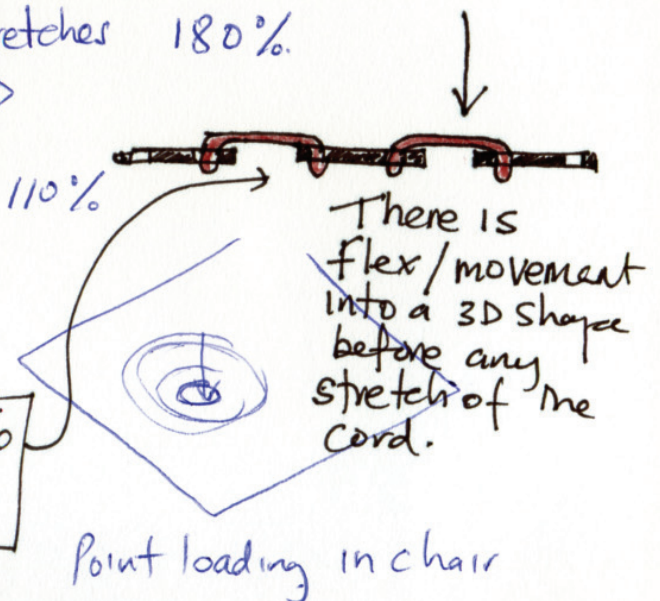 180%.
110%
There is
flex/movement
into a 3D shape
before any
stretch of the
cord.
Point loading in chair